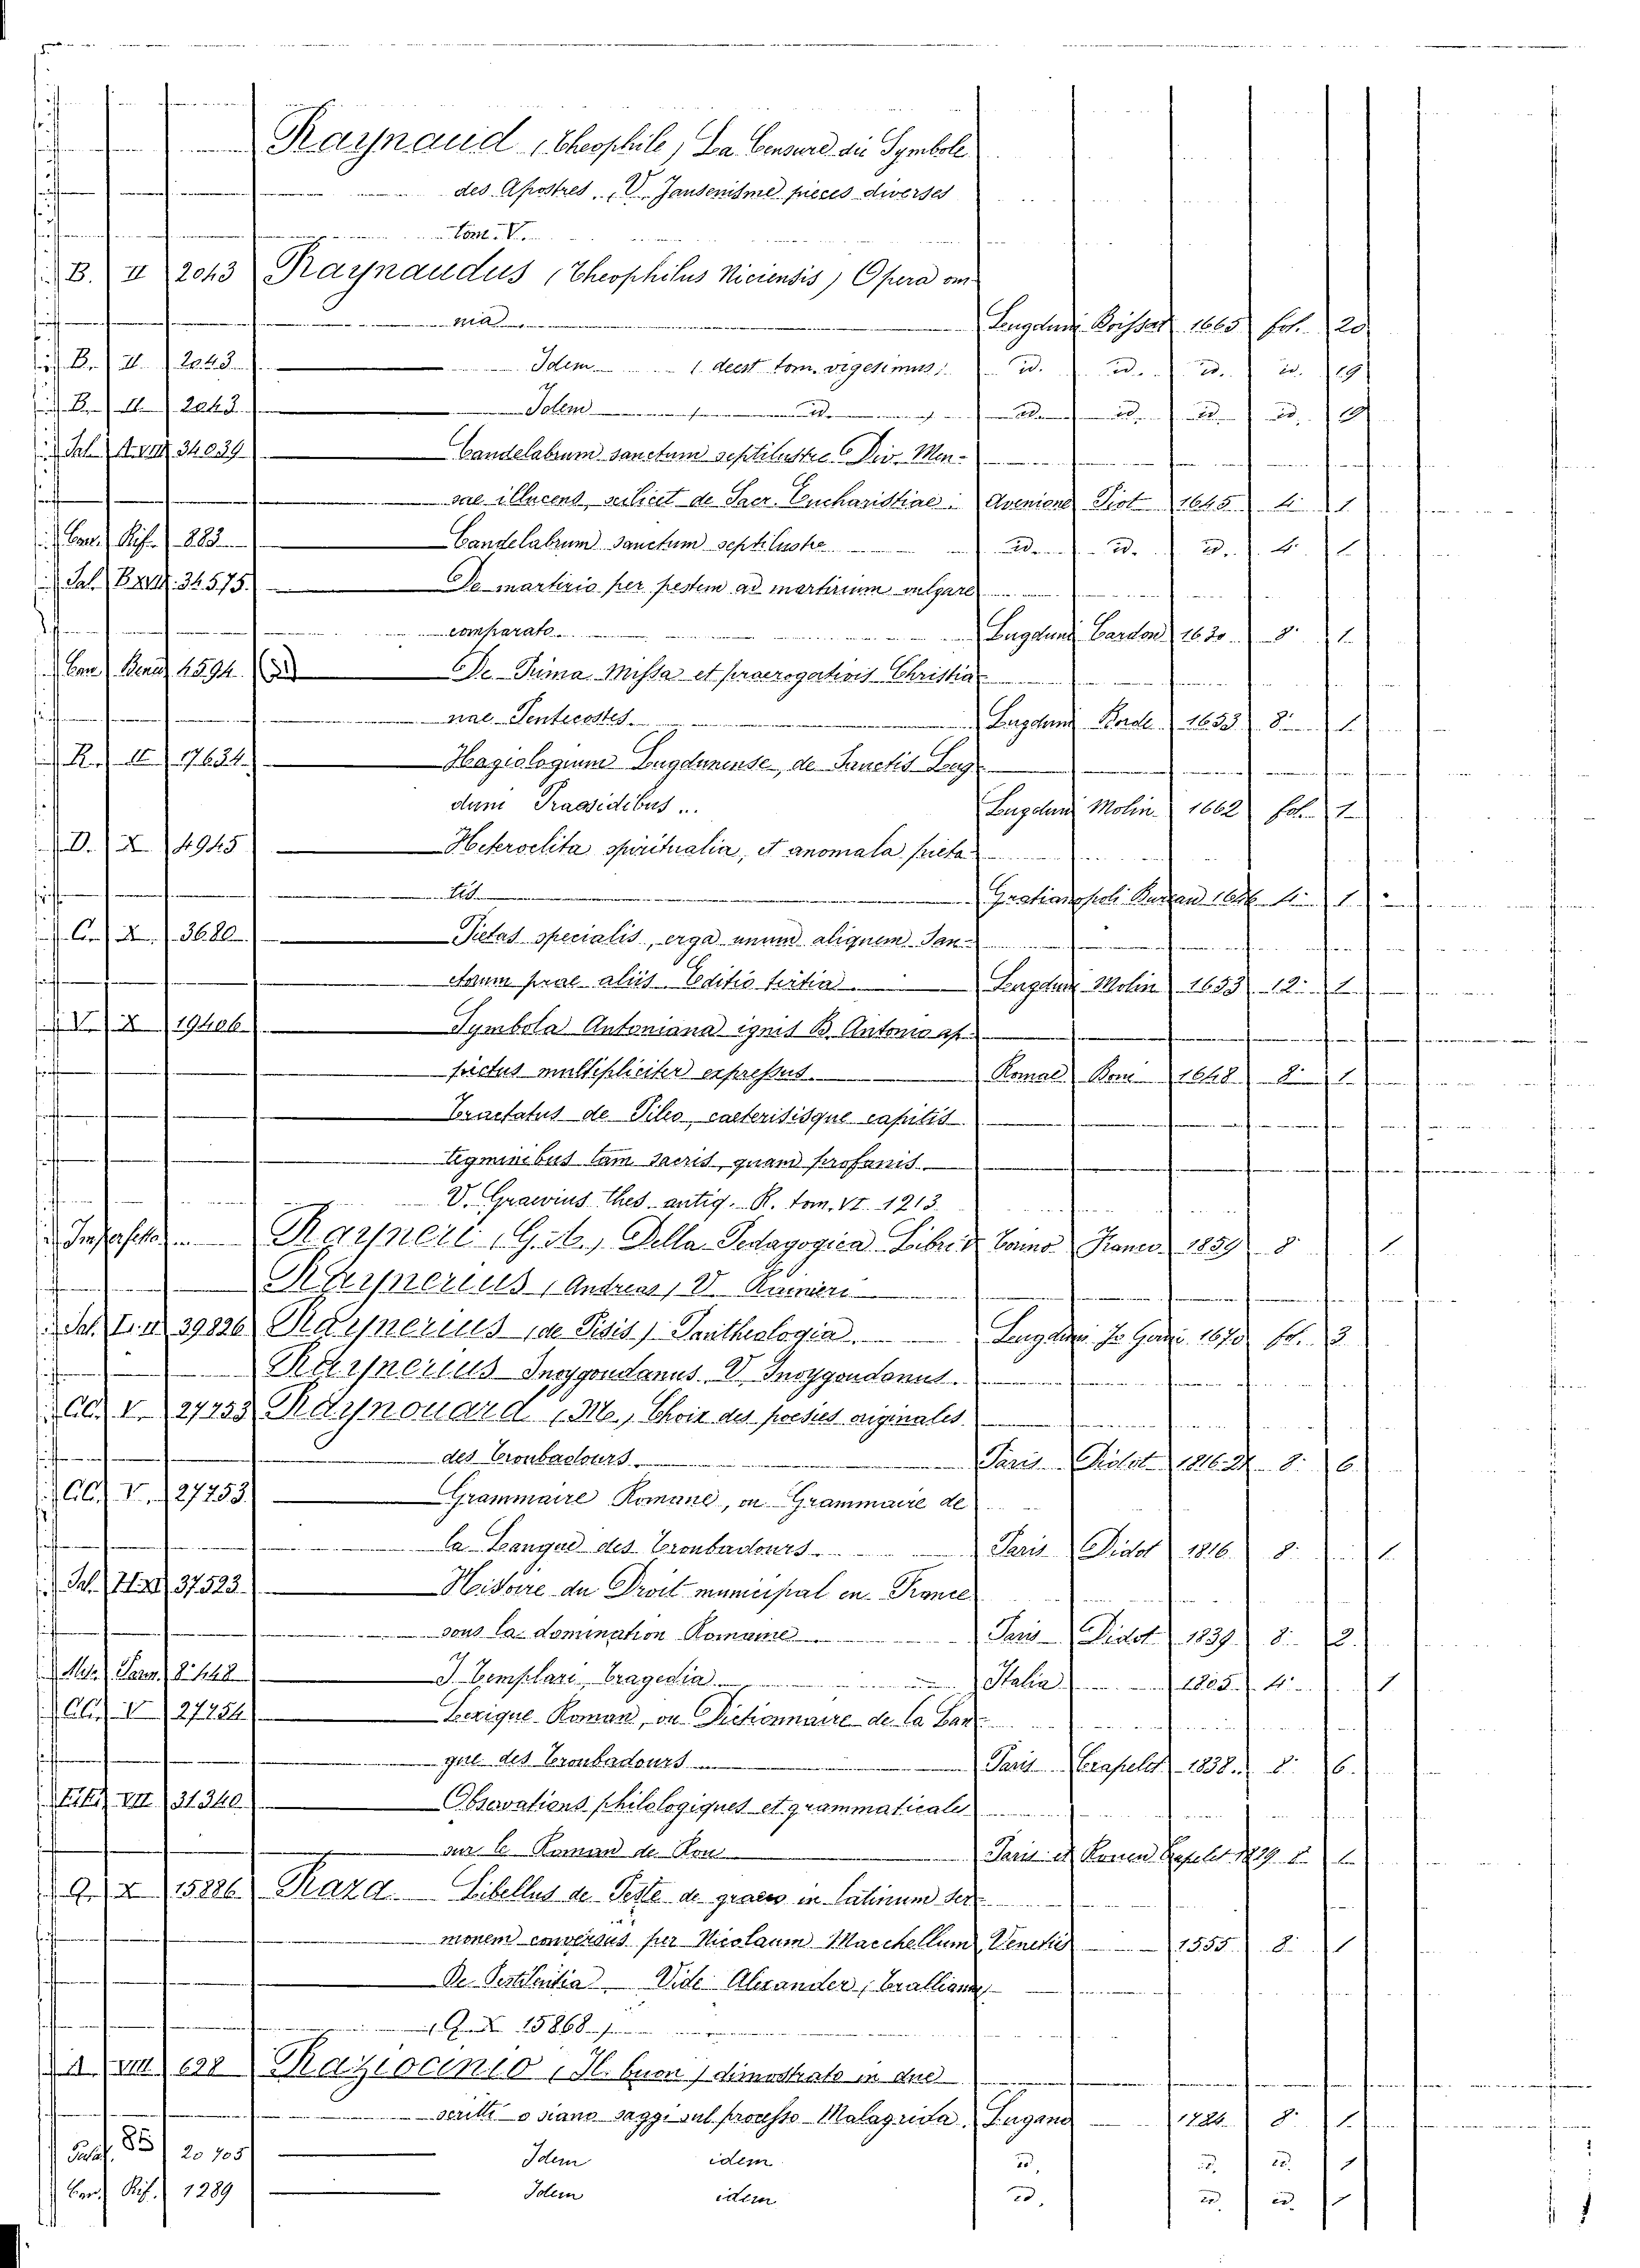 Raynaud (Theophile) La Censure du Symbole
des Apostres, V. Jansenisme pieces diverses
Tom. V.
B. II 2043 Raynaudus (Theophilus Niciensis) Opera om-
nia Lugduni Boissat 1665 fol. 20
B. II. 2043 Idem (deest tom. vigesimus) id. id. id. id. 19
B. II. 2043 Idem id. id. id. id. id. 19
Sal. A.VII 34039 Candelabrum sanctum septilustre Div. Men-
sae illucens, scilicet de Sacr. Eucharistiae Avenione Piot 1645 4. 1
Cor. Rif. 883 Candelabrum sanctum septilustre id. id. id. 4. 1
Sal. 34575 De martirio per pestem ad martirium vulgare
comparato Lugduni Cardon 1630 8. 1
4594 De Prima Missa et praerogativis Christia-
nae Pentecostes Lugduni Borde 1653 8. 1
R. II 17634 Hagiologium Lugdunense, de Sanctis Lug-
duni Praesidibus... Lugduni Molin. 1662 fol. 1
D. X 4945 Heteroclita spiritualia, et anomala pieta-
tis Gratianopoli 4. 1
C. X. 3680 Pietas specialis, erga unum aliquem San-
ctorum prae aliis Editio tertia Lugduni Molin 1653 12. 1
V. X 19406 Symbola Antoniana ignis B. Antonio af-
fictus multipliciter expressus Romae 1648 8. 1
Tractatus de Pileo, caeterisisque capitis
tegminibus tam sacris, quam profanis
V. Grawius Thes. antiq. R. tom. VI. 1213.
Rayneri (G. A.) Della Pedagogica Libri V Franco 1859 8 1
Raynerius (Andreas) V. Raineri
Sal. 39826 Raynerius (de Pisis) Pantheologia Lugduni 1670 fol. 3
Raynerius Inoygondanus V. Inoygondanus.
CC. V. 27753 Raynouard (M.) Choix des poesies originales
des Troubadours Paris Didot 1816-21 8. 6.
CC. V. 27753 Grammaire Romane, ou Grammaire de
la Langue des Troubadours Paris Didot 1816 8. 1.
Sal. 37523 Histoire du Droit municipal en France
sous la domination Romaine Paris Didot 1839 8. 2.
8.° 448 I Templari, Tragedia Italia 1805. 4. 1
CC. V 27754 Lexique Roman, ou Dictionnaire de la Lan-
gue des Troubadours Paris Crapelet 1838. 8. 6.
VII 31340 Observations philologiques et grammaticales
sur le Roman de Rou Paris et Rouen 1829 8 1
Q. X 15886 Raza Libellus de Peste de graeco in latinum ser-
monem conversus per Nicolaum Macchellum Venetiis 1555 8. 1
De Pestilentia Vide Alexander, Trallianus
(Q. X 15868)
A VIII 698 Raziocinio (Il buon) dimostrato in due
scritti o siano saggi sul processo Malagrida Lugano 1784 8. 1.
Palat. 85 20705 Idem idem id. id. id. 1
Cor. Rif. 1289 Idem idem id. id. id. 1